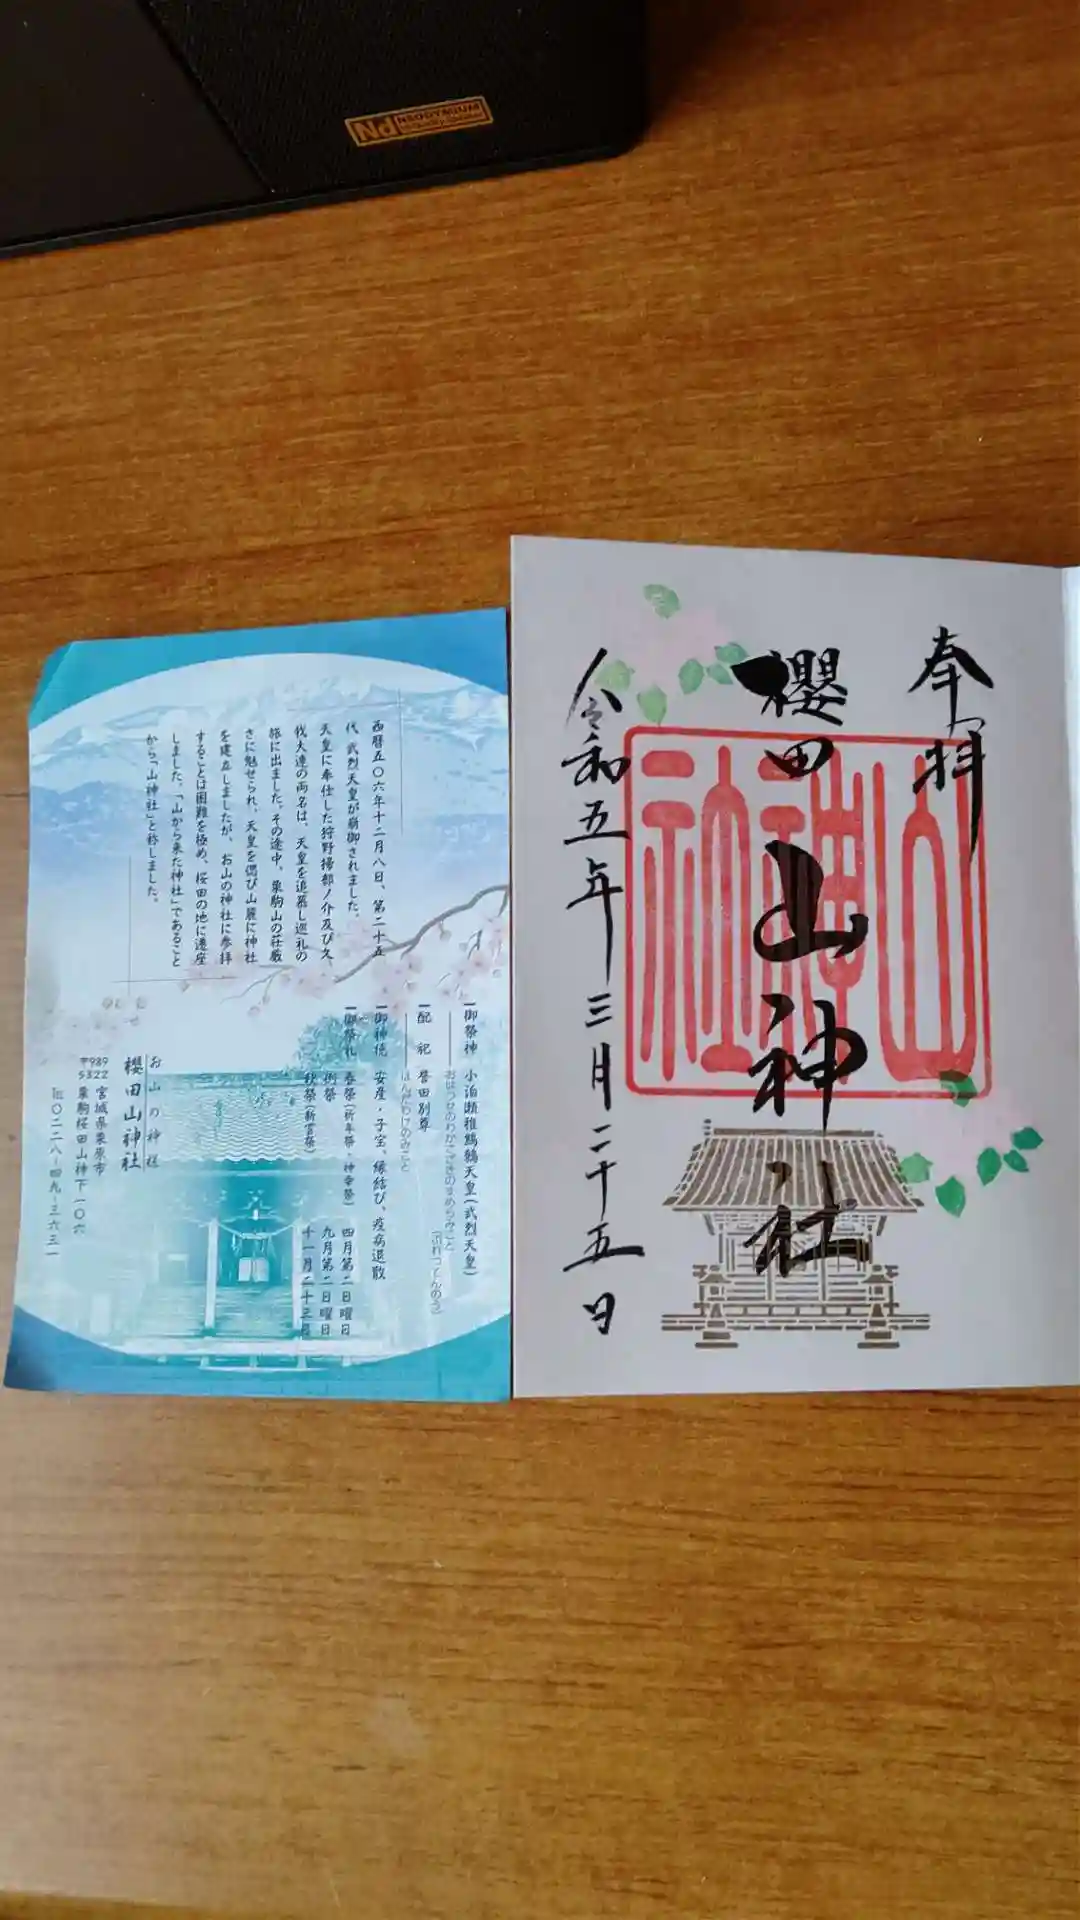 Nd NEODYMIUM
奉拝
櫻田山神社
令和五年三月二十五日
山神社
西暦五〇六年十二月八日、第二十五
代 武烈天皇が崩御されました。
天皇に奉仕した狩野掃部ノ介及び久
我大連の両名は、天皇を追慕し巡礼の
旅に出ました。その途中、栗駒山の荘厳
さに魅せられ、天皇を偲び山麓に神社
を建立しましたが、お山の神社に参拝
することは困難を極め、桜田の地に遷座
しました。「山から来た神社」であること
から「山神社」と称しました。
御祭神 小泊瀬稚鷦鷯天皇(武烈天皇)
おはつせのわかさざきのすめらみこと (ぶれつてんのう)
配祀 誉田別尊
ほんだわけのみこと
御神徳 安産・子宝、縁結び、疫病退散
御祭礼 春祭(祈年祭・神幸祭) 四月第二日曜日
例祭 九月第二日曜日
秋祭(新嘗祭) 十一月二十三日
お山の神様
櫻田山神社
〒989 5322 宮城県栗原市
栗駒桜田山神下一〇六
℡〇二二八-四九-三六三一